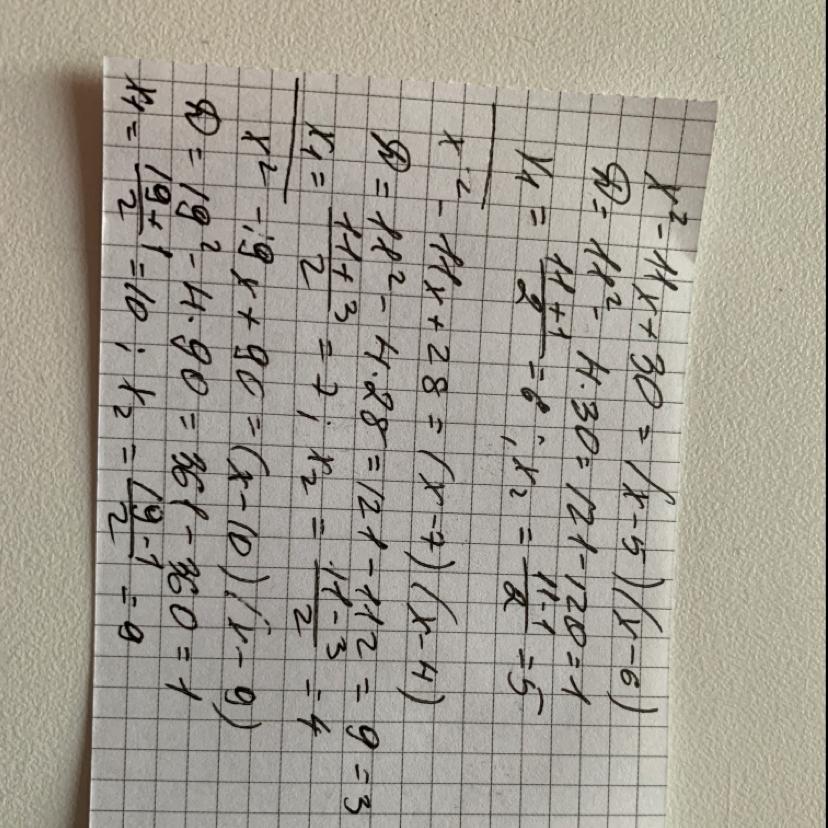 x² - 11x + 30 = (x-5)(x-6)
D = 11² - 4·30 = 121-120 = 1
x₁ = (11+1)/2 = 6 ; x₂ = (11-1)/2 = 5
x² - 11x + 28 = (x-7)(x-4)
D = 11² - 4·28 = 121-112 = 9 = 3
x₁ = (11+3)/2 = 7 ; x₂ = (11-3)/2 = 4
x² - 19x + 90 = (x-10)(x-9)
D = 19² - 4·90 = 361-360 = 1
x₁ = (19+1)/2 = 10 ; x₂ = (19-1)/2 = 9